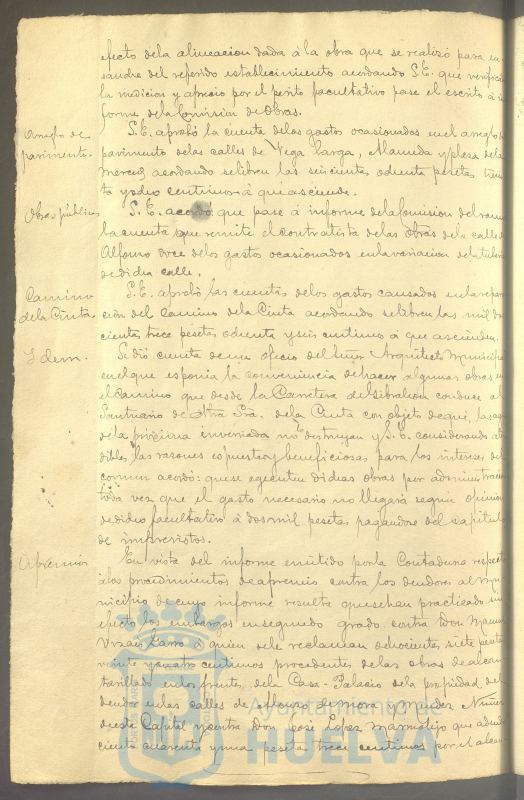 efecto dela alineacion dada á la obra que se realizó para en
sanche del referido establecimiento acordando S.E. que verificada
la medicion y aprecio por el perito facultativo pase el escrito á in
forme dela Comision de Obras.
Arreglo de
pavimento.
S.E. aprobó la cuenta delos gastos ocasionados en el arreglo de
pavimento delas calles de Vega larga, Alameda y plaza dela
Merced acordando se libren las seiscientas ochenta pesetas trein
ta y ocho centimos á que asciende.
Obras públicas
S.E. acordó que pase á informe dela Comision del ramo
la cuenta que remite el contratista delas obras dela calle de
Alfonso doce delos gastos ocasionados en la variacion dela tuberia
de dicha calle.
Camino
dela Cinta.
S.E. aprobó las cuentas delos gastos causados en la repara
ción del Camino dela Cinta acordando se libren las mil dos
cientas trece pesetas ochenta y seis centimos á que ascienden.
Idem.
Se dió cuenta de un oficio del Señor Arquitecto Municipal
en el que exponia la conveniencia de hacer algunas obras en
el camino que desde la Carretera de Gibraleon conduce al
Santuario de Ntra Sra. dela Cinta con objeto de que las aguas
dela próxima invernada no destruyan y S.E. considerando aten
dibles las razones expuestas y beneficiosas para los intereses del
comun acordó: que se ejecuten dichas obras por administracion
toda vez que el gasto necesario no llegará segun opinion
de dicho facultativo á dos mil pesetas pagandose del capitulo
de imprevistos.
Apremios
En vista del informe emitido por la Contaduria respecto
á los procedimientos de apremio contra los deudores al Mu
nicipio de cuyo informe resulta que se han practicado sin
efecto los embargos en segundo grado contra Don Manuel
Vizcaino Garro á quien se le reclaman ochocientas siete pesetas
veinte y cuatro centimos procedentes delas obras de alcan
tarillado en los frentes dela Casa-Palacio dela propiedad del
deudor en las calles de Alfonso de Mora y Mendez Nuñez
de esta Capital y contra Don José Lopez Marmolejo que adeuda
ciento cuarenta y una pesetas trece centimos por el alcan
Ayuntamiento de
HUELVA